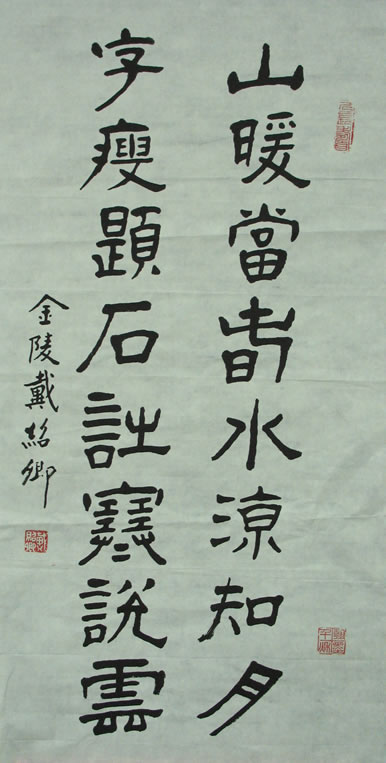 山暖當旾水涼知月
字瘦題石詩寒說雲
金陵戴紹卿